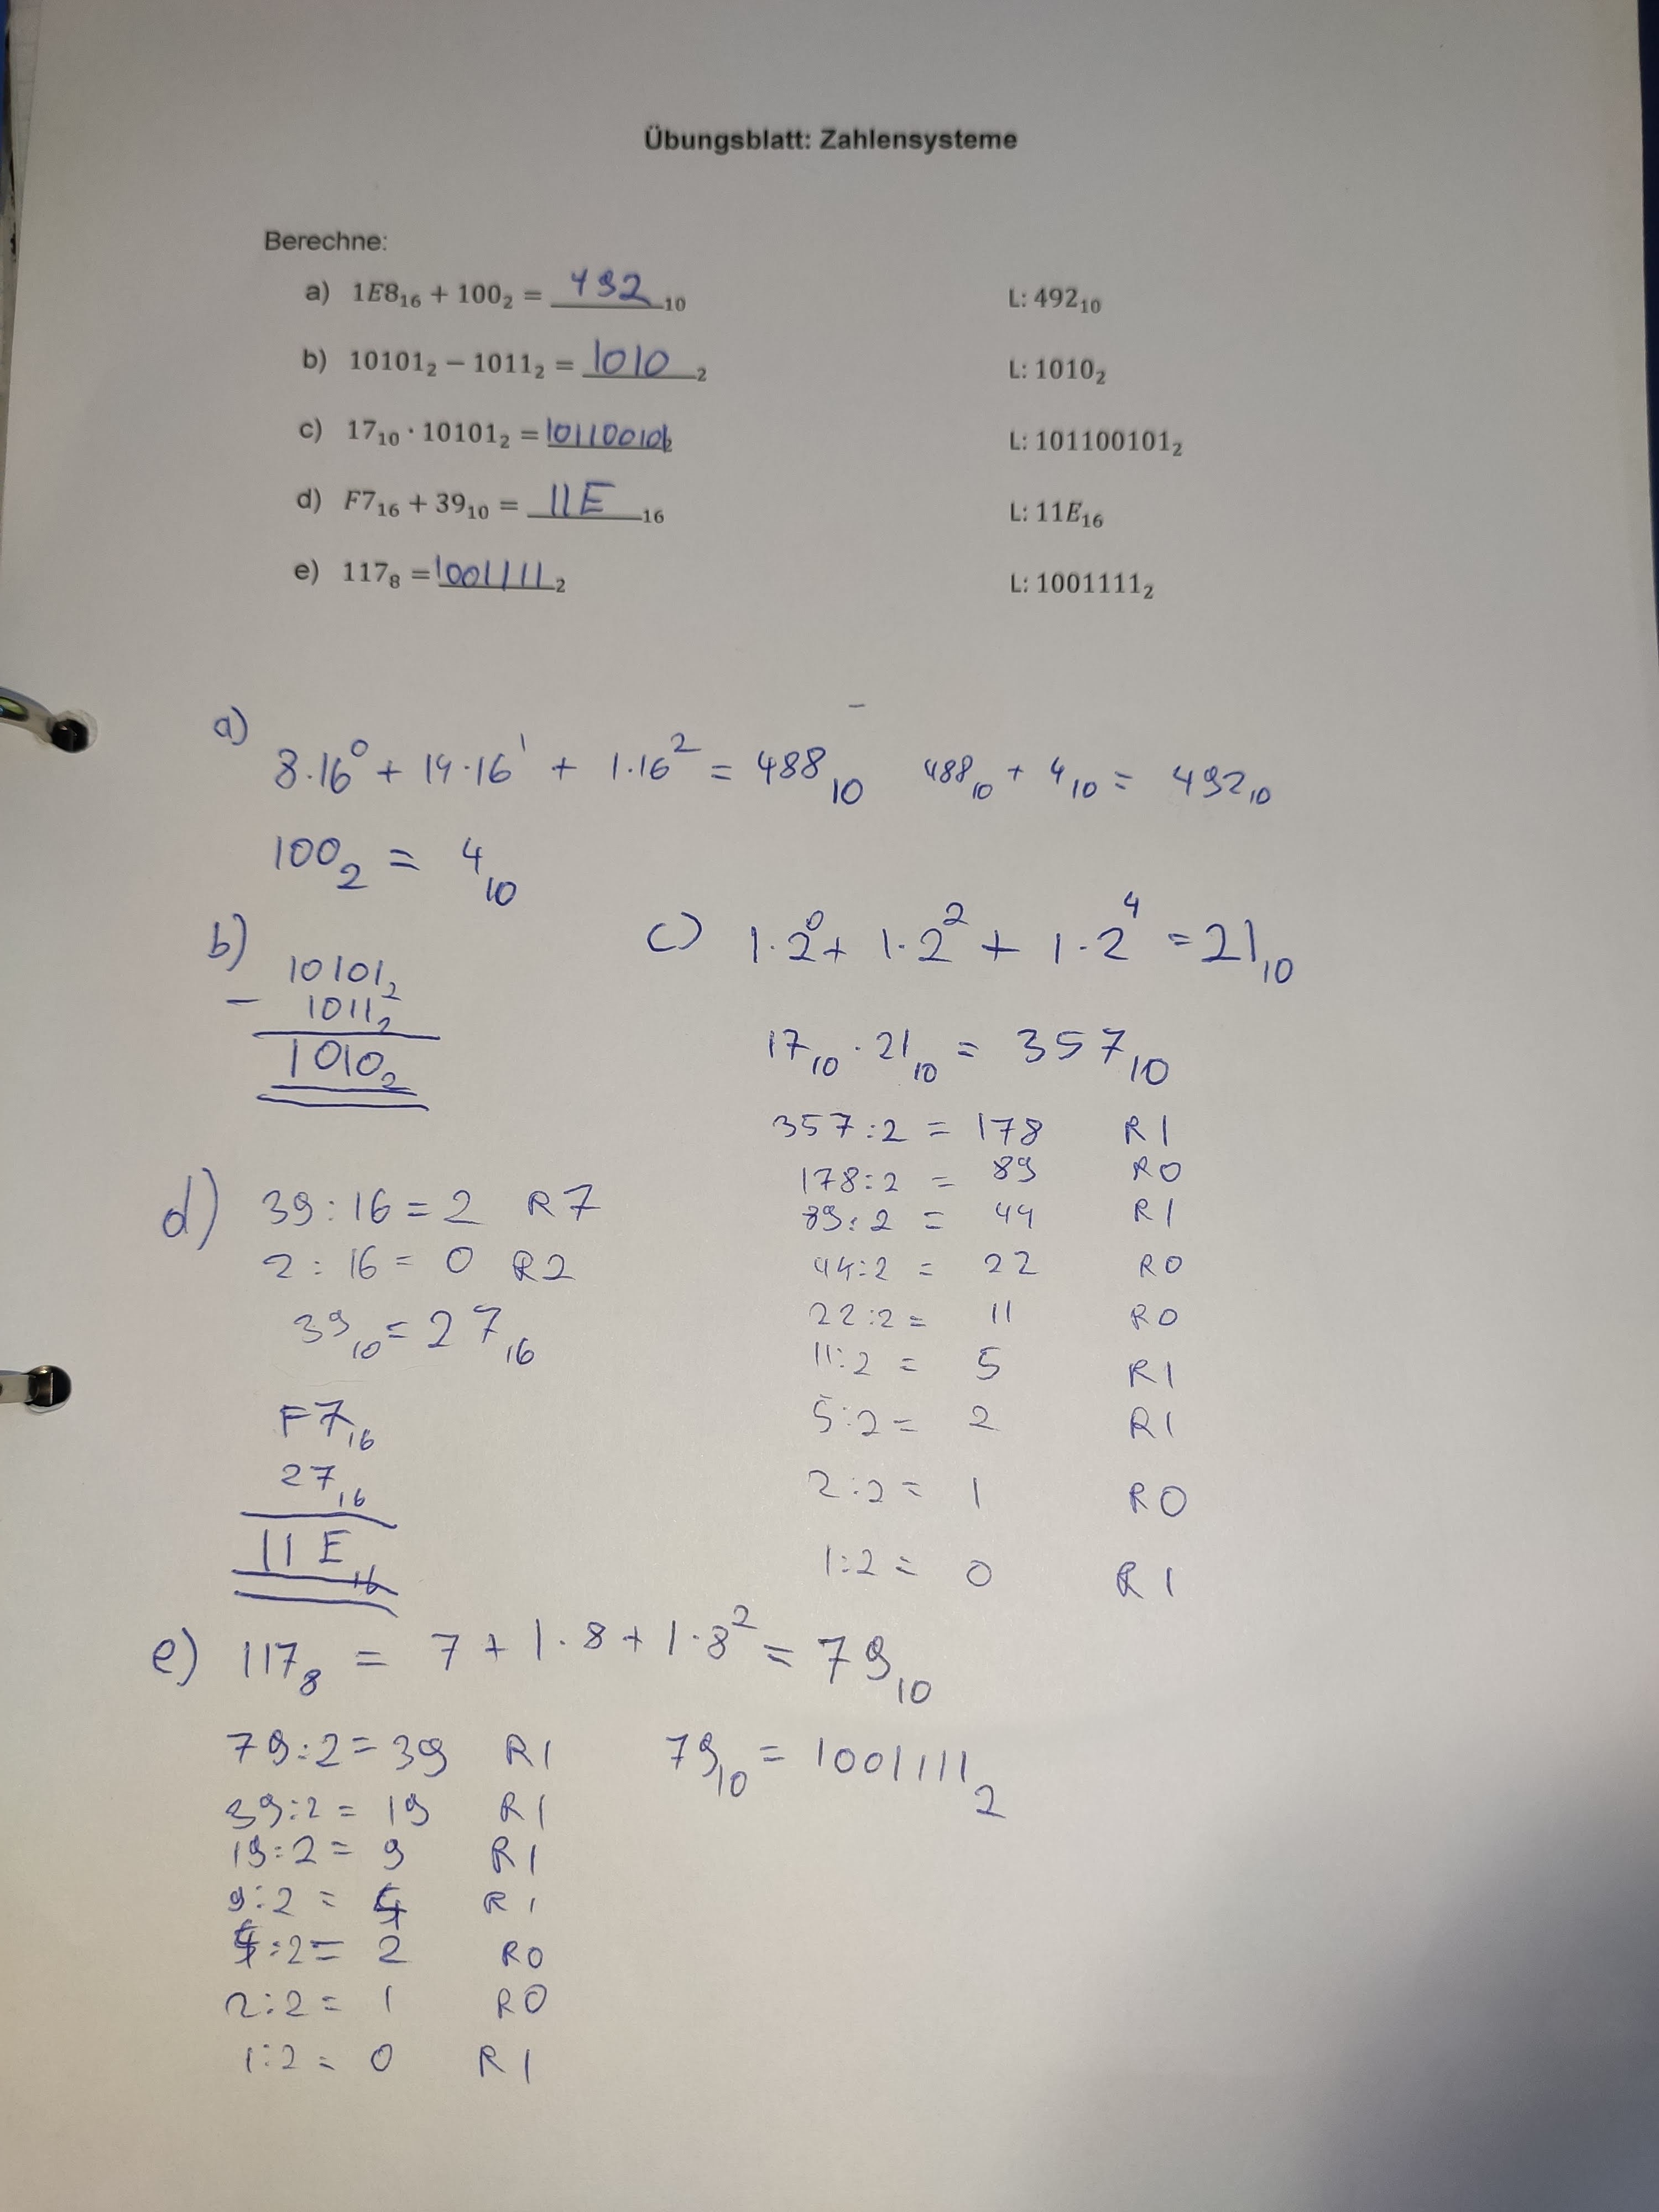 Übungsblatt: Zahlensysteme
Berechne:
a) 1E8₁₆ + 100₂ = 492₁₀ L: 492₁₀
b) 10101₂ − 1011₂ = 1010₂ L: 1010₂
c) 17₁₀ · 10101₂ = 101100101₂ L: 101100101₂
d) F7₁₆ + 39₁₀ = 11E₁₆ L: 11E₁₆
e) 117₈ = 1001111₂ L: 1001111₂
a) 8·16⁰ + 14·16¹ + 1·16² = 488₁₀ 488₁₀ + 4₁₀ = 492₁₀
100₂ = 4₁₀
b)
10101₂
− 1011₂
1010₂
c) 1·2⁰ + 1·2² + 1·2⁴ = 21₁₀
17₁₀ · 21₁₀ = 357₁₀
357:2 = 178 R1
178:2 = 89 R0
89:2 = 44 R1
44:2 = 22 R0
22:2 = 11 R0
11:2 = 5 R1
5:2 = 2 R1
2:2 = 1 R0
1:2 = 0 R1
d) 39:16 = 2 R7
2:16 = 0 R2
39₁₀ = 27₁₆
F7₁₆
27₁₆
11E₁₆
e) 117₈ = 7 + 1·8 + 1·8² = 79₁₀
79:2 = 39 R1 79₁₀ = 1001111₂
39:2 = 19 R1
19:2 = 9 R1
9:2 = 4 R1
4:2 = 2 R0
2:2 = 1 R0
1:2 = 0 R1